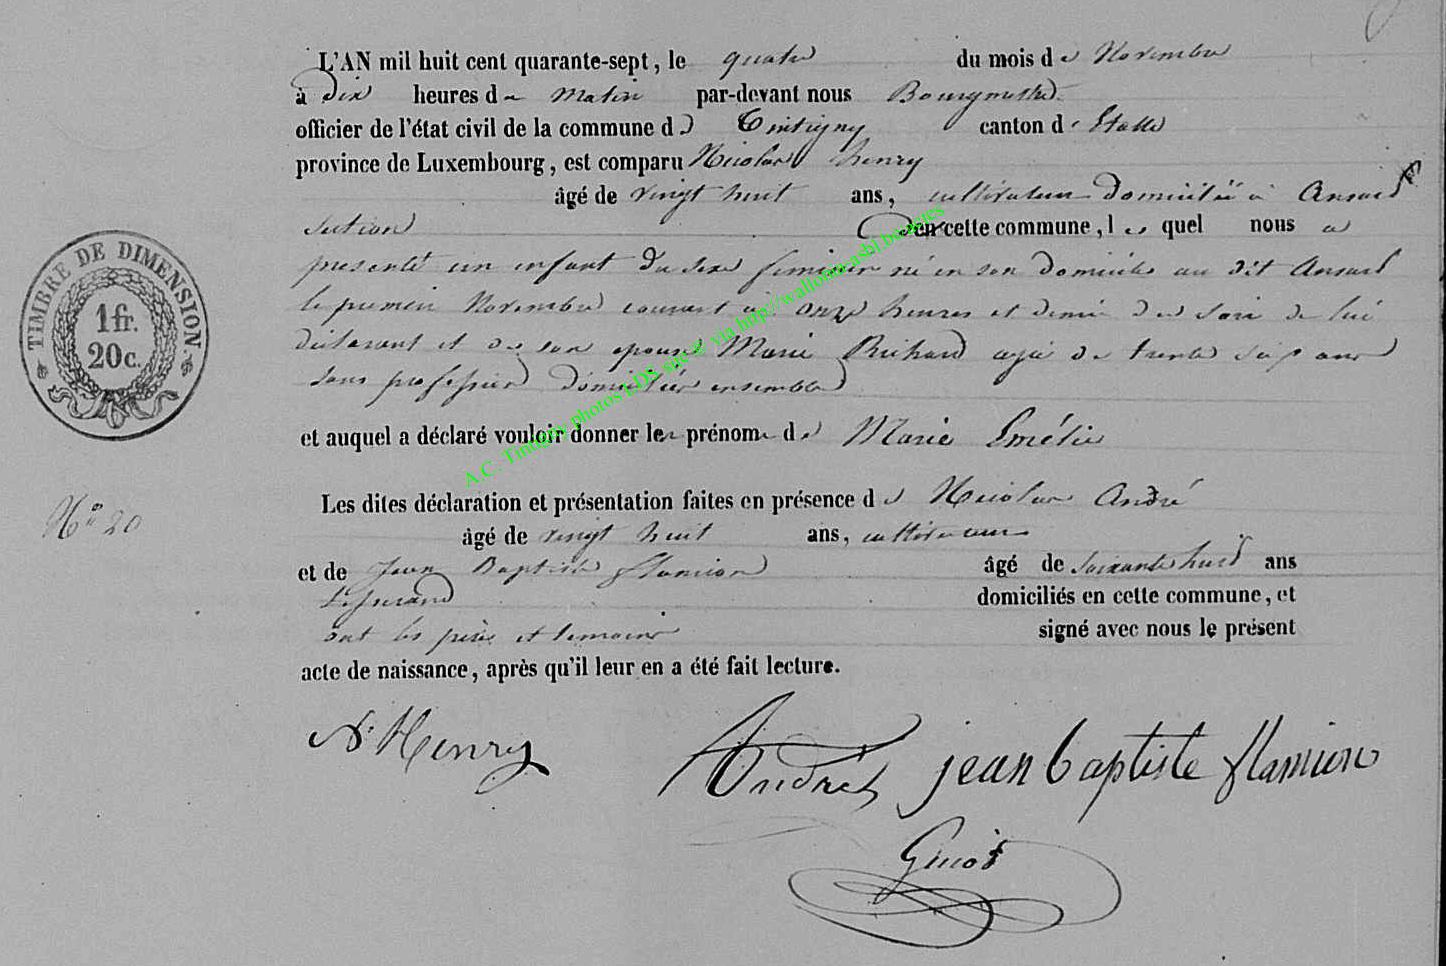 L'AN mil huit cent quarante-sept, le quatre du mois de Novembre
à Dix heures du Matin par-devant nous Bourgmestre
officier de l'état civil de la commune de Tintigny canton d'Etalle
province de Luxembourg, est comparu Nicolas henry
âgé de vingt huit ans, cultivateur Domicilié à Ansart
section de cette commune, lequel nous a
présenté un enfant du sexe féminin né en son Domicile au dit Ansart
le premier Novembre courant à onze heures et demie du soir de lui
déclarant et de son épouse Marie Richard agée de trente sept ans
sans profession Domiciliés ensemble
et auquel a déclaré vouloir donner les prénoms de Marie Emélie
Les dites déclaration et présentation faites en présence de Nicolas André
âgé de vingt huit ans, cultivateur
et de Jean Baptiste flamion âgé de soixante huit ans
domiciliés en cette commune, et
ont les père et temoins signé avec nous le présent
acte de naissance, après qu'il leur en a été fait lecture.
N. Henry André jean baptiste flamion
TIMBRE DE DIMENSION
1 fr.
20 c.
N° 20
A.C. Tintigny photos LDS via http://wallonia-asbl.be